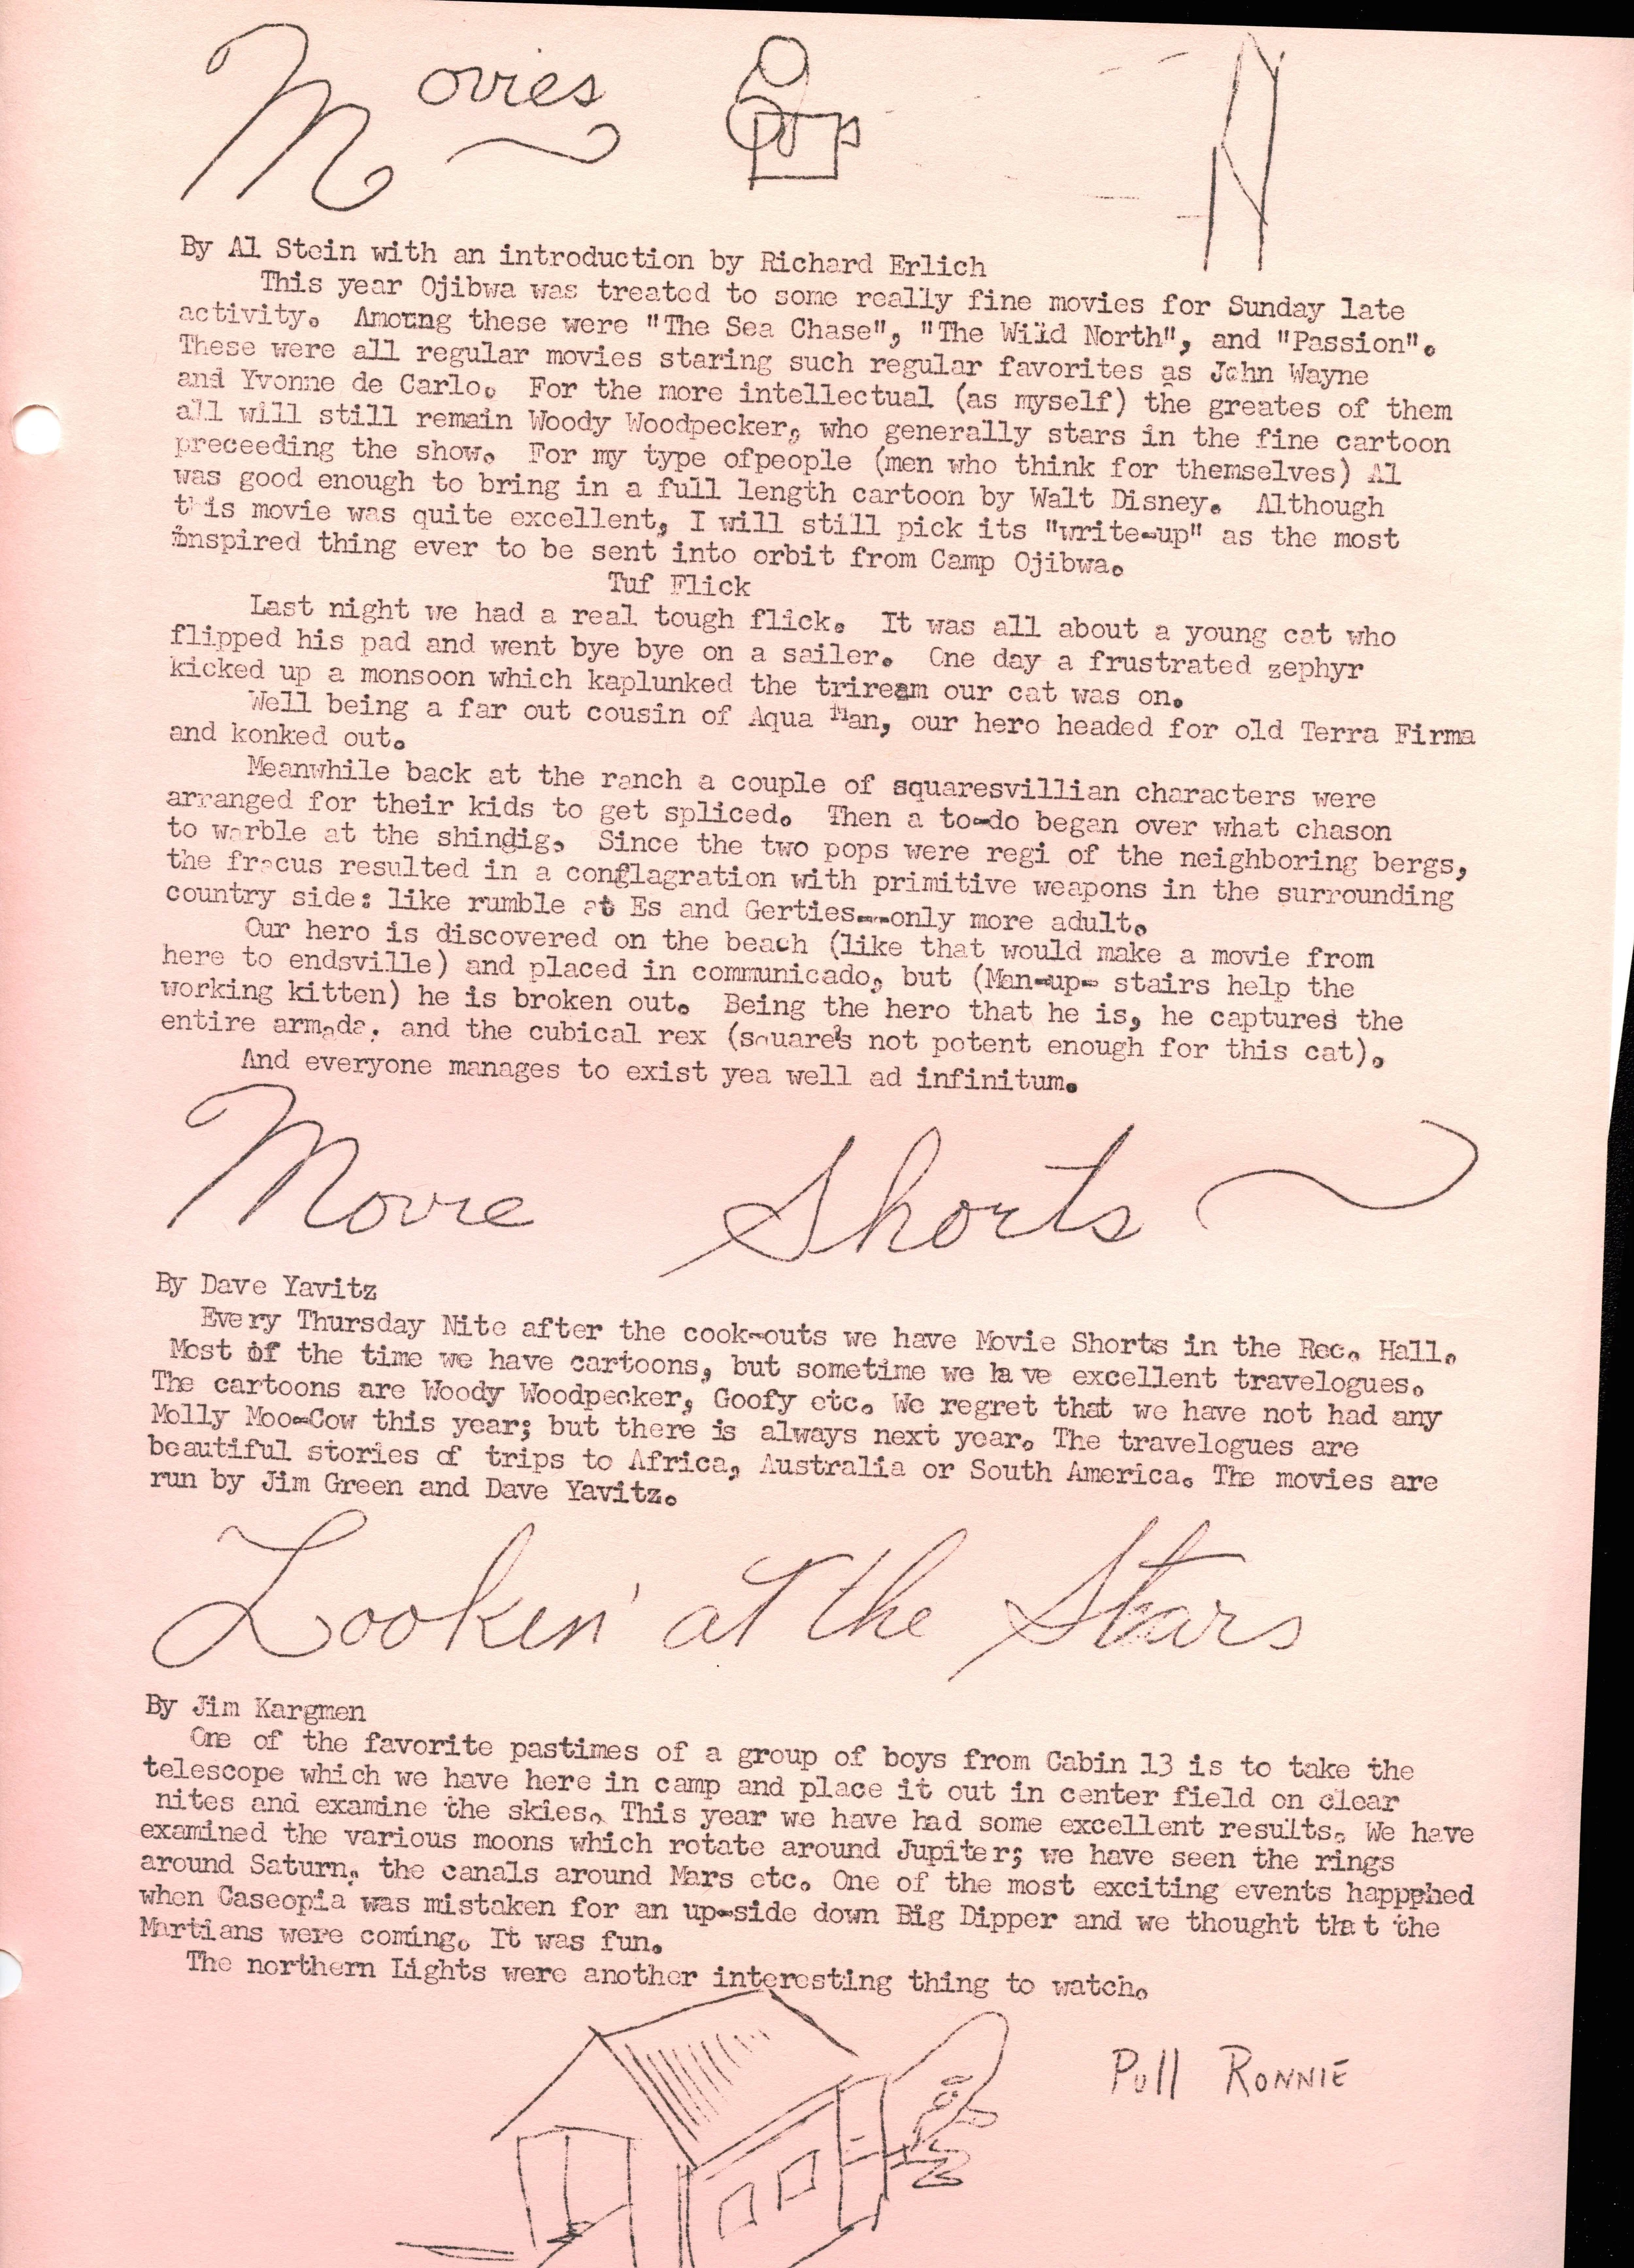 Movies
By Al Stein with an introduction by Richard Erlich
This year Ojibwa was treated to some really fine movies for Sunday late
activity. Amoung these were "The Sea Chase", "The Wild North", and "Passion".
These were all regular movies staring such regular favorites as John Wayne
and Yvonne de Carlo. For the more intellectual (as myself) the greates of them
all will still remain Woody Woodpecker, who generally stars in the fine cartoon
preceeding the show. For my type ofpeople (men who think for themselves) Al
was good enough to bring in a full length cartoon by Walt Disney. Although
this movie was quite excellent, I will still pick its "write-up" as the most
inspired thing ever to be sent into orbit from Camp Ojibwa.
Tuf Flick
Last night we had a real tough flick. It was all about a young cat who
flipped his pad and went bye bye on a sailer. One day a frustrated zephyr
kicked up a monsoon which kaplunked the triream our cat was on.
Well being a far out cousin of Aqua Man, our hero headed for old Terra Firma
and konked out.
Meanwhile back at the ranch a couple of squaresvillian characters were
arranged for their kids to get spliced. Then a to-do began over what chason
to warble at the shindig. Since the two pops were regi of the neighboring bergs,
the fracus resulted in a conflagration with primitive weapons in the surrounding
country side: like rumble at Es and Gerties--only more adult.
Our hero is discovered on the beach (like that would make a movie from
here to endsville) and placed in communicado, but (Man-up- stairs help the
working kitten) he is broken out. Being the hero that he is, he captures the
entire armada, and the cubical rex (square's not potent enough for this cat).
And everyone manages to exist yea well ad infinitum.
Movie Shorts
By Dave Yavitz
Every Thursday Nite after the cook-outs we have Movie Shorts in the Rec. Hall.
Most of the time we have cartoons, but sometime we ha ve excellent travelogues.
The cartoons are Woody Woodpecker, Goofy etc. We regret that we have not had any
Molly Moo-Cow this year; but there is always next year. The travelogues are
beautiful stories of trips to Africa, Australia or South America. The movies are
run by Jim Green and Dave Yavitz.
Lookin' at the Stars
By Jim Kargmen
One of the favorite pastimes of a group of boys from Cabin 13 is to take the
telescope which we have here in camp and place it out in center field on clear
nites and examine the skies. This year we have had some excellent results. We have
examined the various moons which rotate around Jupiter; we have seen the rings
around Saturn, the canals around Mars etc. One of the most exciting events happphed
when Caseopia was mistaken for an up-side down Big Dipper and we thought tha t the
Martians were coming. It was fun.
The northern Lights were another interesting thing to watch.
Pull RONNIE